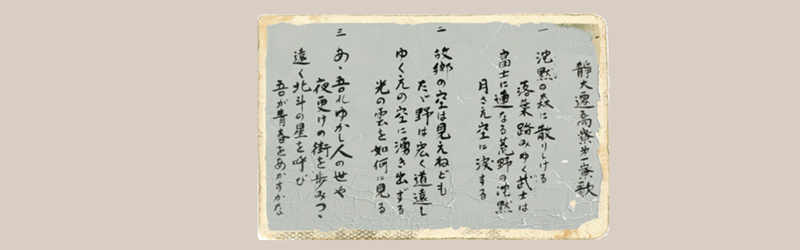 靜大 高 一寮歌
一 沈黙の森に散りしける
落葉踏みゆく武士は
富士に連なる荒野の沈黙
月さえ空に涙する
二 故郷の空は見えねども
たゞ野は広く道遠し
ゆくえの空に湧き出ずる
光の雲を如何に見る
三 あゝ吾れゆかし人の世や
夜更けの街を歩みつゝ
遠く北斗の星を呼び
吾が青春をあかすかな